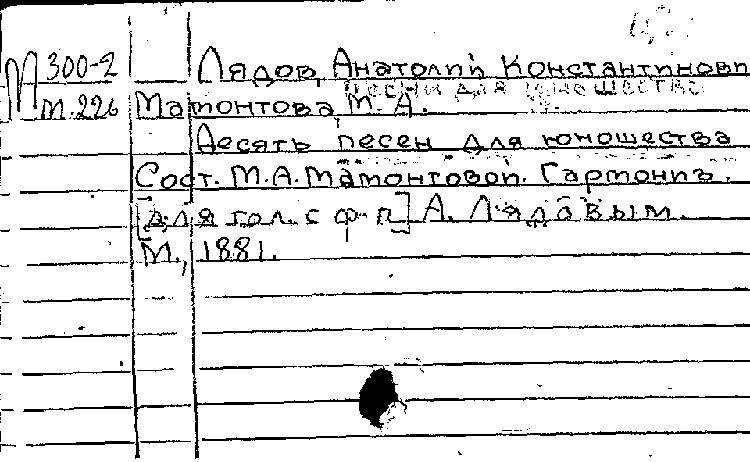 М 300-2
М.226
Лядов, Анатолий Константинови
Песни для юношества
Мамонтова, М. А.
Десять песен для юношества
Сост. М.А.Мамонтовой. Гармониз.
[для гол. с ф-п] А. Лядовым.
М., 1881.